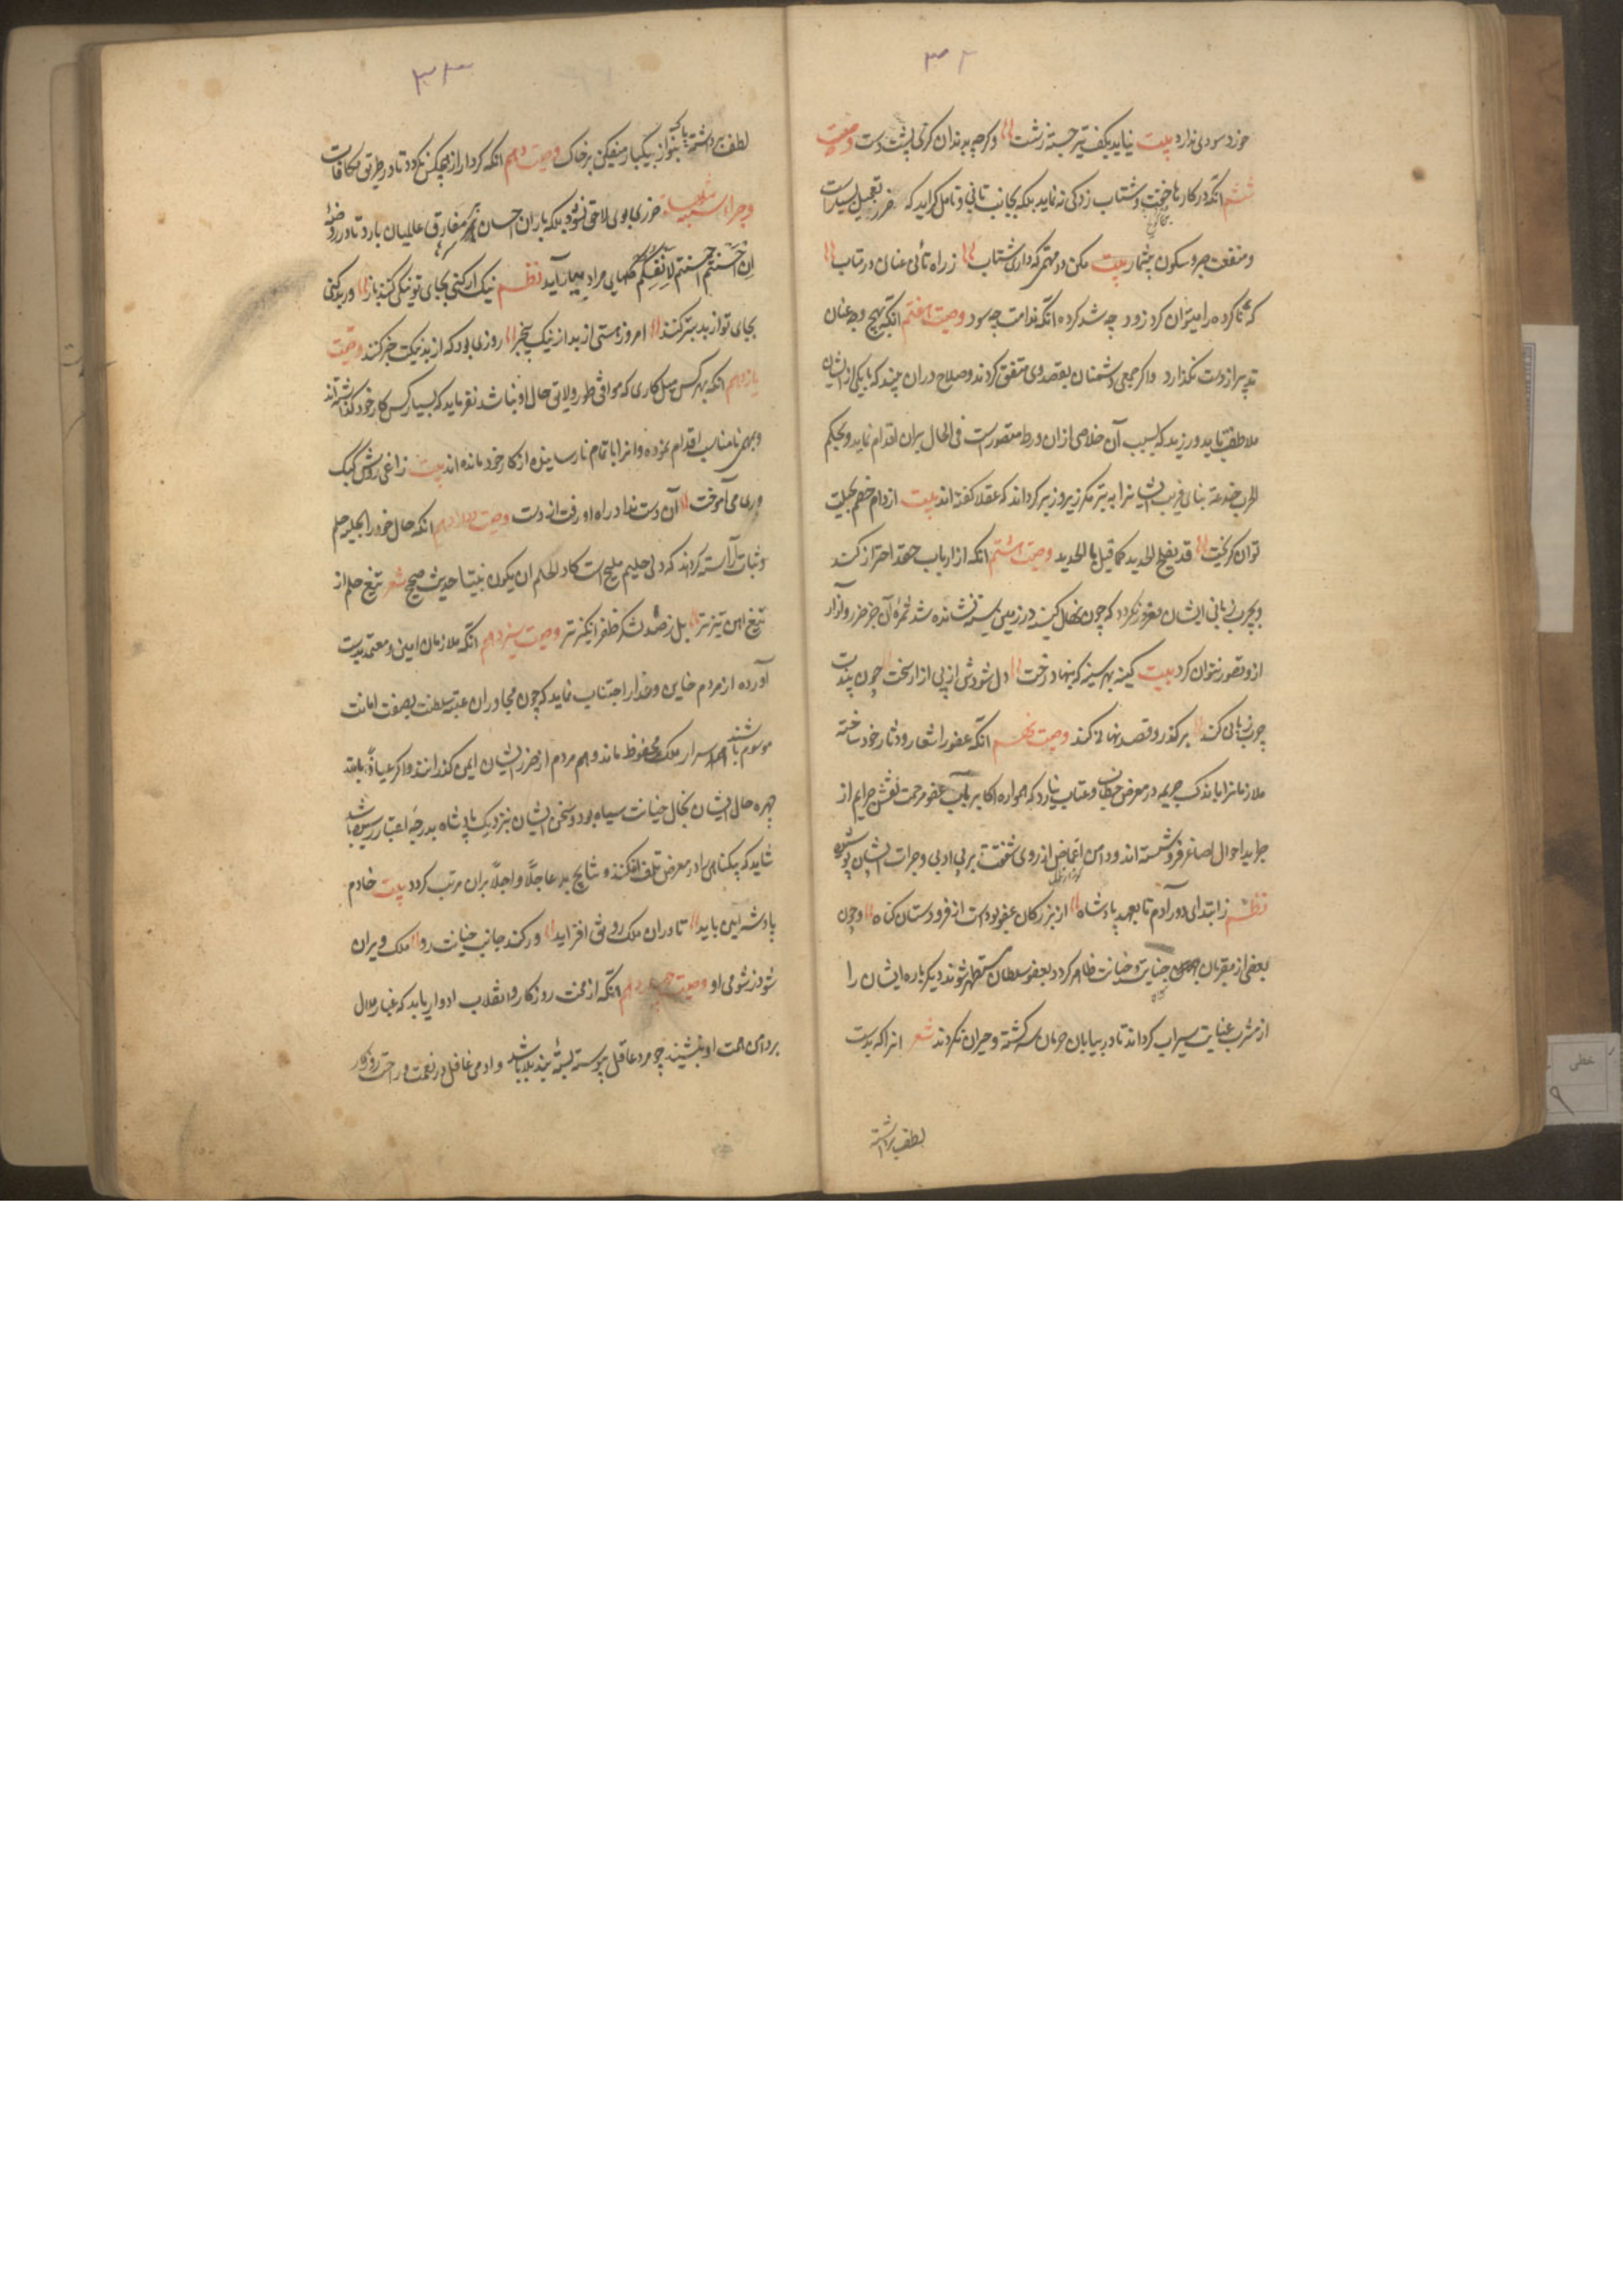 ۳۲
خورد سودی ندارد بیت نیاید بکف تیر جسته ز شست وگرچه بدندان گزی پشت دست وصیت
ششم آنکه در کارها خفت و شتاب زدگی ننماید بلکه بجانب تانی و تامل گراید که ضرر تعجیل بسیارست
و منفعت صبر و سکون بیشمار بیت مکن در مهمی که داری شتاب ز راه تأنی عنان درمتاب
که ناکرده را میتوان کرد زود چه شد کرده آنگه ندامت چه سود وصیت هفتم آنکه بهیچ وجه عنان
تدبیر از دست نگذارد و اگر جمعی دشمنان بقصد وی متفق گردند و صلاح در آن بیند که با یکی از ایشان
ملاطفت باید ورزید که بسبب آن خلاصی از ان ورطه متصورست فی الحال بران اقدام نماید و بحکم
الحرب خدعة بنای فریب ایشانرا به تبر مکر زیر و زبر گرداند که عقلا گفته اند بیت از دام خصم بحیلت
توان گریخت قد یفلح الحدید کما قیل بالحدید وصیت هشتم آنکه از ارباب حقد احتراز کند
و بچرب زبانی ایشان مغرور نگردد که چون نهال کینه در زمین سینه نشانده شد ثمرهٔ آن جز ضرر و آزار
از و تصور نتوان کرد بیت کینه بهر سینه که بنهاد رخت دل شودش از پی آزار سخت چون بیندت
چرب زبانی کند بر گذرد و قصد نهانی کند وصیت نهم آنکه عفو را شعار و دثار خود ساخته
ملازمانرا باندک جریمه در معرض خطاب و عتاب نیارد که همواره اکابر بآب عفو و مرحمت نقش جرایم از
جراید احوال اصاغر فرو شسته اند و دامن اغماض از روی شفقت بر بی ادبی و جرأت ایشان پوشیده
نظم ز ابتدای دور آدم تا بعهد پادشاه از بزرگان عفو بودست از فرودستان گناه و چون
بعضی از مقربان جنایت و خیانت ظاهر گردد و بعفو سلطان مستظهر شوند دیگر باره ایشان را
از مشرب عنایت سیراب گرداند تا در بیابان حرمان سرگشته و حیران نگردند شعر آنرا که بدست
لطف برداشتهٔ
۳۳
لطف برداشتهٔ بنواز بیکبار میفکن بر خاک وصیت دهم آنکه گرد آزار هیچکس نگردد تا در طریق مکافات
و جزاء سیئة سیئة مثلها ضرری بوی لاحق نشود بلکه باران احسان بر مفارق عالمیان بارد تا در روضهٔ
اِن اَحسنتم اَحسنتم لِاَنفسکم گلهای مراد ببار آید نظم نیک ار کنی بجای تو نیکی کنند باز ور بد کنی
بجای تو از بد بتر کنند امروز هستی از بد و از نیک بیخبر روزی بود که از بد و نیکت خبر کنند وصیت
یازدهم آنکه بهر کس میل کاری که موافق طور و لایق حال او نباشد نفرماید که بسیار کس کار خود گذاشته اند
و بمهمی نامناسب اقدام نموده و انرا باتمام نارسانیده از کار خود مانده اند بیت زاغی روش کبک
دری می آموخت آن دست نداد و راه او رفت از دست وصیت دوازدهم آنکه حال خود را بحلیه حلم
و ثبات آراسته گرداند که دل حلیم ملیح است کاد الحلیم ان یکون نبیّا حدیث صحیح شعر تیغ حلم از
تیغ آهن تیزتر بل ز صد لشکر ظفر انگیزتر وصیت سیزدهم آنکه ملازمان امین و معتمد بدست
آورده از مردم خاین و غدار اجتناب نماید که چون مجاوران عتبهٔ سلطنت بصفت امانت
موسوم باشند هم اسرار ملک محفوظ ماند و هم مردم از ضرر ایشان ایمن گذرانند و اگر عیاذاً بالله
چهره حال ایشان بخال خیانت سیاه بود و سخن ایشان نزدیک پادشاه بدرجهٔ اعتبار رسیده باشد
شاید که بیگناهی را در معرض تلف افکنند و نتایج بد عاجلاً و آجلاً بران مرتب گردد بیت خادم
پادشه امین باید تا در ان ملک رونق افزاید ور کند جانب خیانت رو ملک ویران
شود ز شومی او وصیت چهاردهم آنکه از محنت روزگار و انقلاب ادوار باید که غبار ملال
بر دامن همت او ننشیند چه مرد عاقل پیوسته بستهٔ بند بلا باشد و آدمی غافل در نعمت و راحت روزگار
خطی
۹